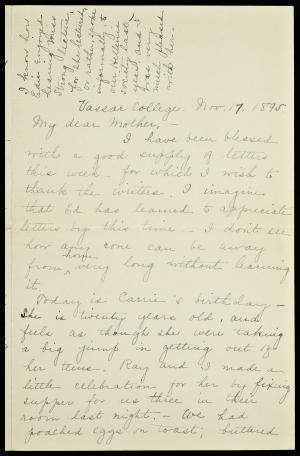 I know how
Edie enjoyed
hearing Miss
Strong lecture,
for she lectured,
or rather spoke
informally, to
our Hellenic
society last
year, and I
was very
much pleased
with her.
Vassar College. Nov. 17, 1895
My dear Mother, -
I have been blessed
with a good supply of letters
this week - for which I wish to
thank the writers. I imagine
that Ed has learned to appreciate
letters by this time - I don't see
how any one can be away
from home very long without learning
it.
Today is Carrie's birthday -
She is twenty years old, and
feels as though she were taking
a big jump in getting out of
her teens. Ray and I made a
little celebration for her by fixing
supper for us three in their
room last night. - We had
poached eggs on toast, buttered